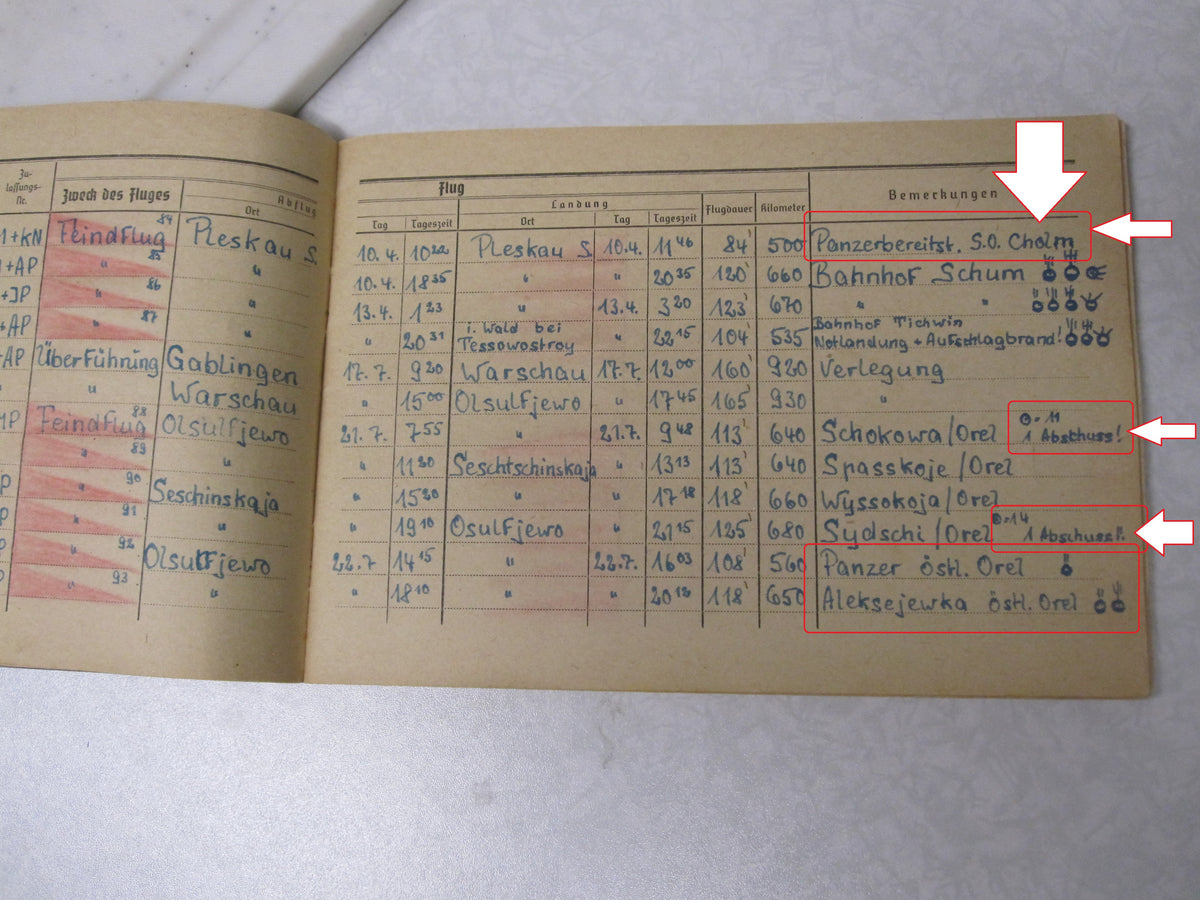 Zu-
lassungs-
Nr.
Zweck des Fluges
Abflug
Ort
Flug
Landung
Tag Tageszeit Ort Tag Tageszeit Flugdauer Kilometer
Bemerkungen
1+KN Feindflug 84 Pleskau S. 10.4. 10 22 Pleskau S. 10.4. 11 46 84' 500 Panzerbereitst. S.O. Cholm
+AP " 85 " 10.4. 18 35 " " 20 35 120' 660 Bahnhof Schum
+JP " 86 " 13.4. 1 23 " 13.4. 3 20 123' 670 " "
+AP " 87 " " 20 31 i. Wald bei Tessowostroy " 22 15 104' 535 Bahnhof Tichwin
Notlandung + Aufschlagbrand!
+AP Überführung Gablingen 17.7. 9 20 Warschau 17.7. 12 00 160' 920 Verlegung
" " Warschau " 15 00 Olsulfjewo " 17 45 165' 930 "
Feindflug 88 Olsulfjewo 21.7. 7 55 " 21.7. 9 48 113' 640 Schokowa/Orel = 11
1 Abschuss!
" 89 " " 11 20 Seschtschinskaja " 13 13 113' 640 Spasskoje/Orel
P " 90 Seschinskaja " 15 20 " " 17 18 118' 660 Wyssokoja/Orel
P " 91 " " 19 10 Osulfjewo " 21 15 125' 680 Sydschi/Orel = 14
1 Abschuss!
P " 92 Olsulfjewo 22.7 14 15 " 22.7. 16 03 108' 560 Panzer östl. Orel
" 93 " " 18 10 " " 20 18 118' 650 Aleksejewka östl. Orel